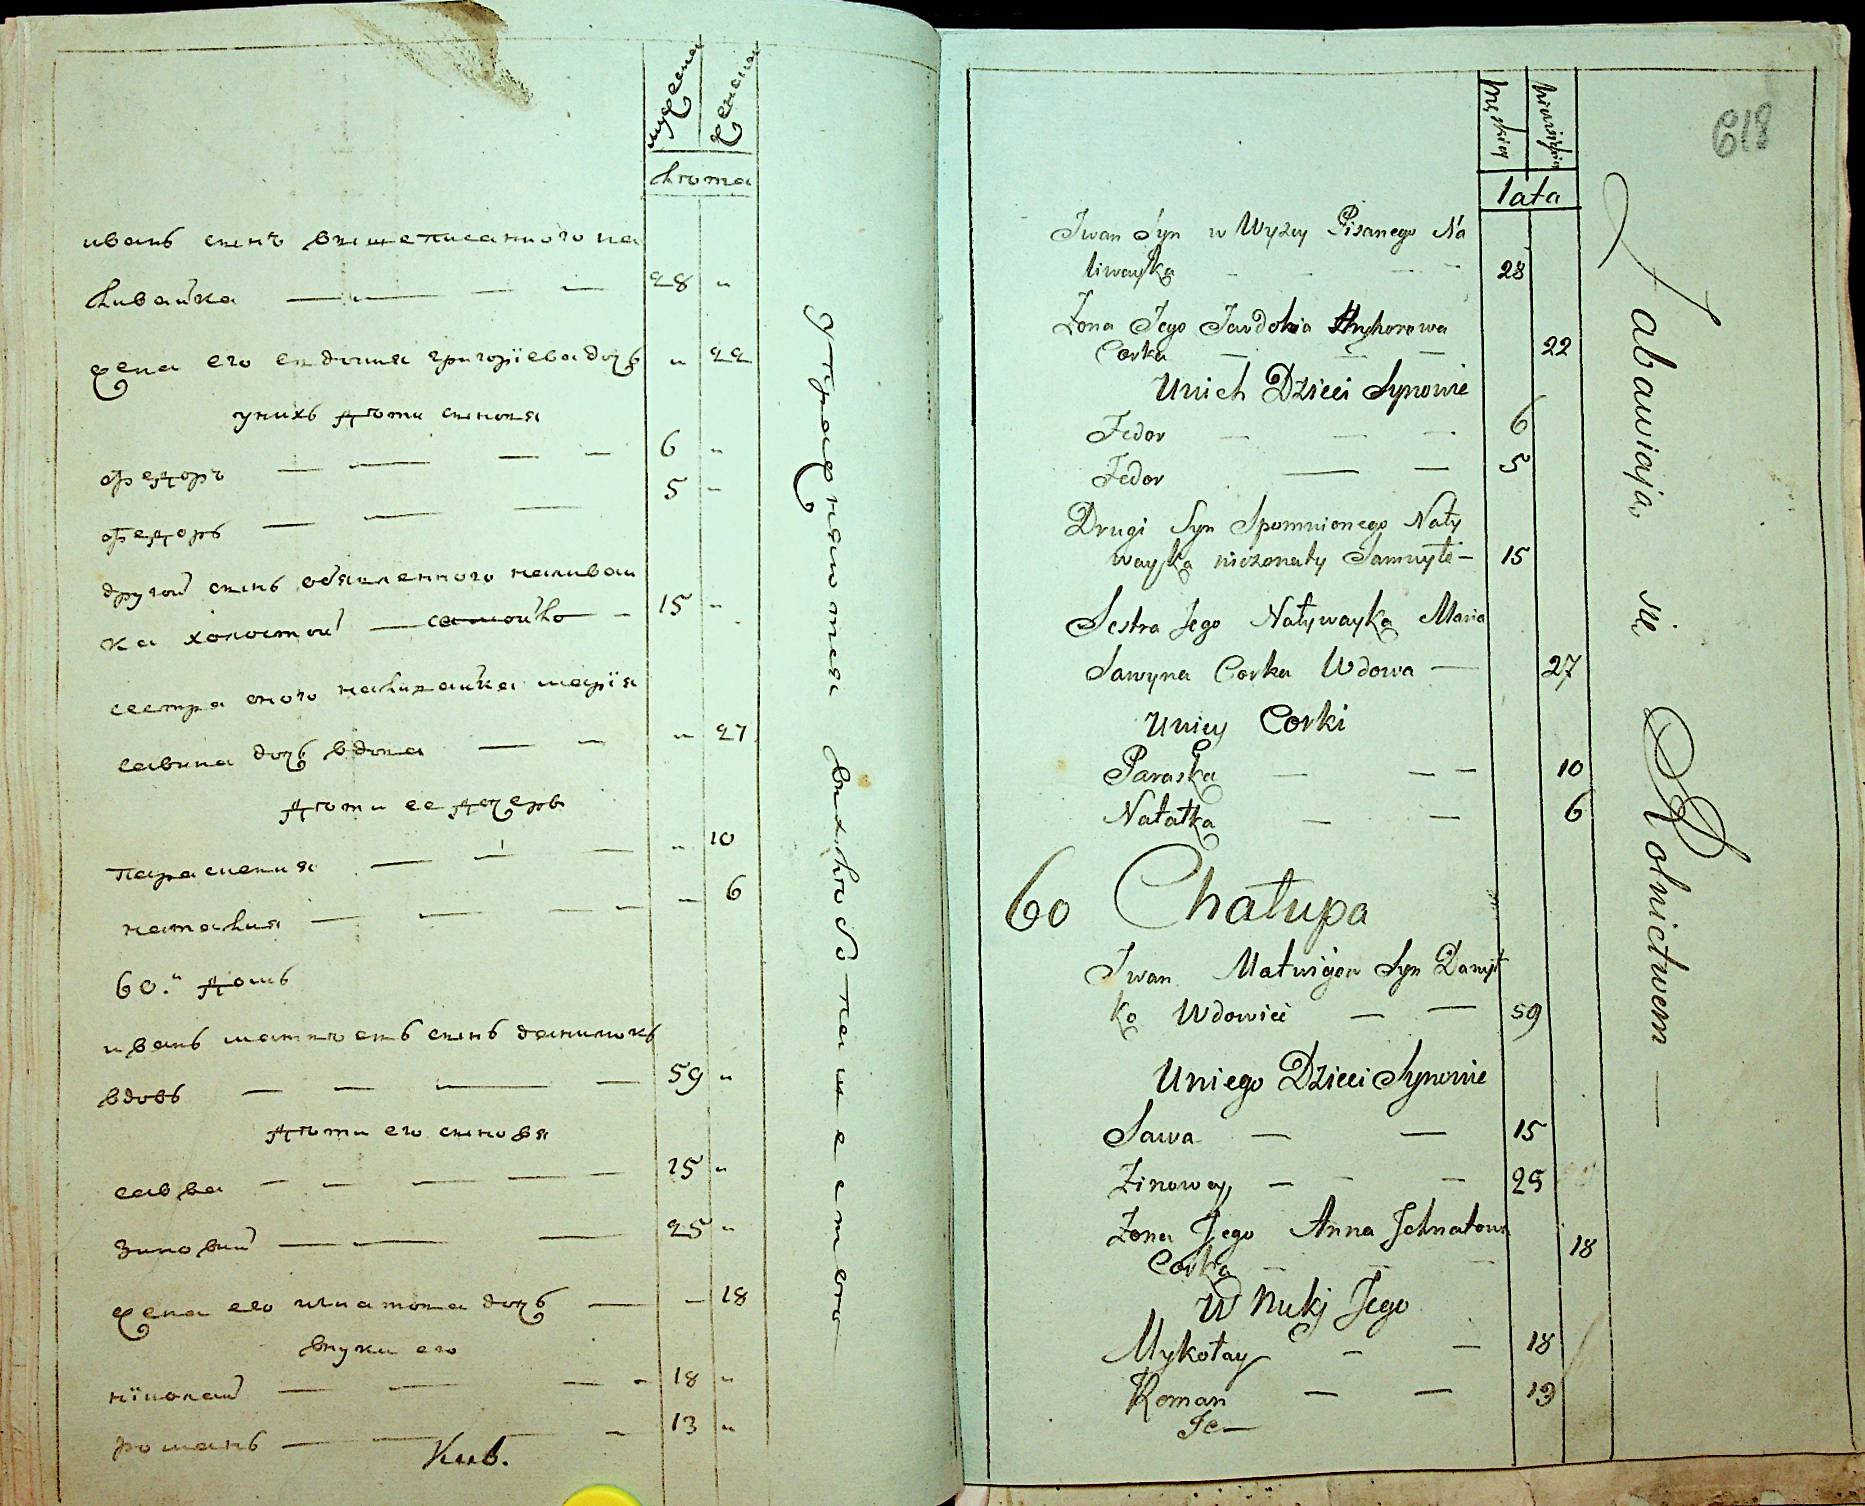 мужеска
женска
лѣта
иванъ сынъ вышеписанного на
ливайка — — — — 28 „
жена его евдокия григорїева дочь „ 22
унихъ дѣти сыновя
федоръ — — — — 6 „
федоръ — — — 5 „
другой сынъ объявленного наливай
ка холостой — самойло — 15 „
сестра оного наливайка марїя
савина дочь вдова — — „ 27
дѣти ее дочери
параскевия — — — „ 10
наталия — — — — „ 6
60.й домъ
иванъ матвѣевъ сынъ данилюкъ
вдовъ — — — — 59 „
дѣти его сыновя
савва — — — — — 15 „
зиновий — — — 25 „
жена его игнатова дочь — „ 18
внуки его
нїколай — — — - 18 „
романъ — — — — 13 „
упражняютея въ хлѣбопашествѣ
618
męskiey
lata
Iwan Syn w Wyżey Pisanego Na
liwayka — — — — 28
Żona Jego Jawdokia Hryhorowa
Corka — — — 22
Unich Dzieci Synowie
Fedor — — — 6
Fedor — — 5
Drugi Syn Spomnionego Nały
wayka nieżonaty Samuyło — 15
Sestra Jego Naływayka Maria
Sawyna Corka Wdowa — 27
Uniey Corki
Paraska — — — 10
Natałka — — 6
60 Chałupa
Iwan Matwijow Syn Danył
ko Wdowiec — — 59
Uniego Dzieci Synowie
Sawa — — 15
Zinowey — — — 25
Żona Jego Anna Jchnatowa
Corka — — — 18
Wnuki Jego
Mykołay — — 18
Roman — — 13
Je—
Zabawiają się Rolnictwem —